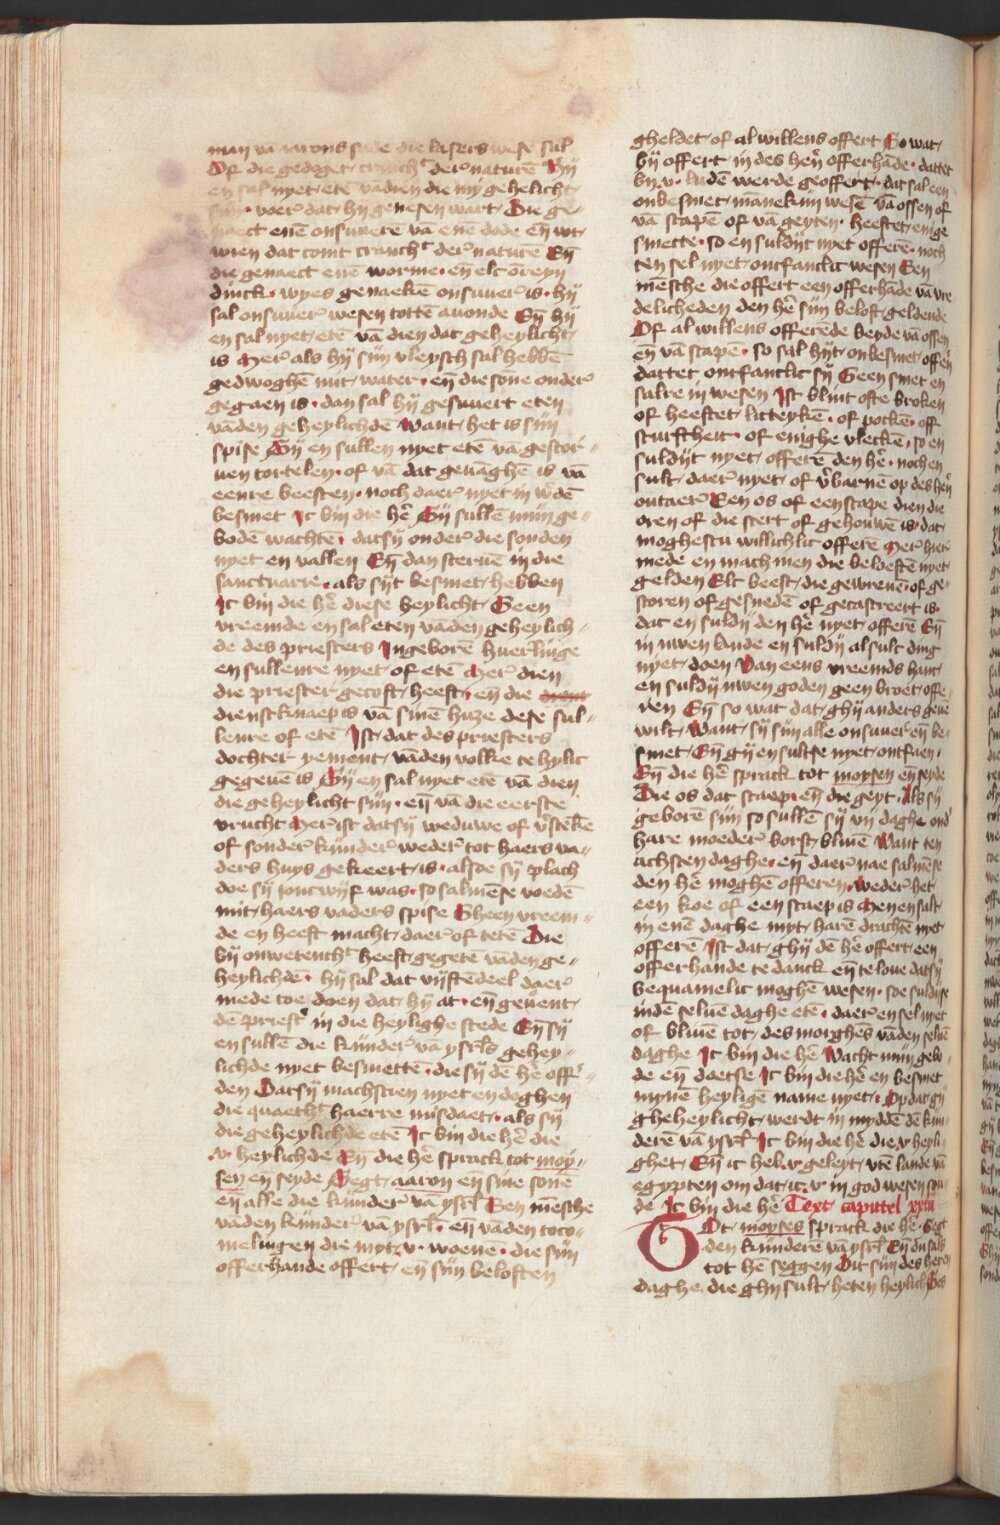 man vā aarons sade die lasers wese sal
Of die gedoget cranch⁹ der naturē Hij
en sal nyet etē vādien die my geheilicht
sijn voer dat hij genesen wart Die ge-
naect enē onsuuere vā enē dode eñ wt
wien dat comt cranch⁹ der naturē Eñ
die genaect enē worme · eñ elc ōreyn
dinck · wyes genaekē onsuuer is · hij
sal onsuuer wesen tottē auonde Eñ hij
en sal nyet etē vā dien dat geheylicht
is Mer als hij sijn vleysch sal hebbē
gedwoghē mit water · eñ die sōne onder
gegaen is · dan sal hij gesuuert eten
vāden geheylichdē Want het is sijn
spise Gij en sullen nyet etē vā gestor-
uen tortelen · of vā dat geuāghē is vā
eenre beesten · noch daer nyet in w'dē
besmet Ic bin die hē Gij sullē mijn ge-
bodē wachtē · datsij onder die sonden
nyet en vallen Eñ dan steruē in die
sanctuarre · als sijt besmet hebben
Ic bin die hē diese heylicht Geen
vreemde en sal eten vāden geheylich-
de des priesters Ingeborē huerlinge
en sullenre nyet of etē Mer dien
die priester gecoft heeft · eñ die
dienstknaep is vā sinē huze dese sul-
lenre of etē Ist dat des priesters
dochter yement vāden volke te hylic
gegeuē is Gij en sal nyet etē vā dien
die geheylicht sijn · eñ vā die eerste
vrucht Mer ist datsij weduwe of v'stekē
of sonder kijnder weder tot haers va-
ders huys gekeert is · alsoe sij plach
doe sij joncwijf was · so salmēse voedē
mit haers vaders spise Gheen vreem-
de en heeft macht daer of tetē Die
bij onwetench⁹ heeft gegete vāden ge-
heylichdē · hij sal dat vijftēdeel daer
mede toe doen dat hij at · eñ geuent
dē priest' in die heylighe stede Eñ sij
en sullē die kijnder vā ysrl's gehey-
lichde nyet besmettē · die sij dē hē offr'-
den Datsij machscien nyet en doghen
die quaeth⁹ haerre misdaet · als sij
die geheylichde etē Ic bin die hē die
·v· heylichde Eñ die hē sprack tot moy-
sen eñ seyde Segt aaron eñ sine sonē
eñ alle die kijnder vā ysrl Een mēsche
vāden kijnder vā ysrl · eñ vāden toco-
melingen die myt ·v· woenē · die sijn
offerhande offert eñ sijn beloften
gheldet of al willens offert So wat
bij offert in des hē offerhāde · dattet
by ·v· ludē werde geoffert · dat sal een
onbesmet mānekijn wesē vā ossen of
vā scapē of vā geyten · heeftet enige
smette · so en suldijt nyet offerē · noch
ten sel nyet ontfanclic wesen Een
mēsche die offert een offerhāde vā vre
delicheden den hē sijn beloft geldende
Of al willens offerēde beyde vā ossen
eñ vā scapē · so sal hijt onbesmet offerē
dattet ontfanclic sij Geen smet en
salre in wesen Ist blint ofte broken
of heeftet litteykē · of pockē · off
scurftheit · of enighe vleckē · so en
suldijt nyet offerē den hē · noch en
sult daer nyet of v'barnē op des hē
outaer Een os of een scape dien die
oren of die stert of gehouwē is · dat
moghestu willichlic offerē Mer hier
mede en mach men die beloeftē nyet
gelden Elc beest die gewreuē · of ge-
storen of gesnedē of gecastreert is ·
dat en suldij den hē nyet offerē Eñ
in uwen lande en suldij al sulc ding
nyet doen Van eens vreemds hant
en suldij uwen goden geen broet offe-
ren Eñ so wat dat ghij anders geuē
wilt Want sij sijn alle onsuuer eñ be-
smet Eñ gij en sultse nyet ontfaen ·
Eñ die hē sprack tot moysen eñ seyde
Die os dat scaep · eñ die geyt · Als sij
geborē sijn so sullē sij vij daghe ond'
hare moeder borst bliuē Want ten
achsten daghe · eñ daer nae salmēse
den hē moghē offeren · Weder het
een koe of een scaep is Men en salt
in enē daghe myt harē drachtē nyet
offerē Ist dat ghij dē hē offert een
offerhande te danck eñ te loue datsij
bequamelic moghē wesen · soe suldijse
indē seluē daghe etē · daer en sel nyet
of bliuē tot des morghēs vāden seluē
daghe Ic bin die hē Wacht mijn gebo-
de eñ doetse Ic bin die hē en besmet
mynē heyligē name nyet · Op dat gij
gheheylicht werdt in myddē dē kijn-
derē vā ysrl Ic bin die hē die ·v· heyli-
ghet Eñ ic heb ·v· geleyt vtē lande vā
egypten om dat ic ·v· in god wesen sou
de Ic bin die hē Text capittel xxiij
TOt moyses sprack die hē · Segt
den kijnderē vā ysrl Eñ du salt
tot hē seggen Dit sijn des heren
daghe die ghij sult heten heylich Ses